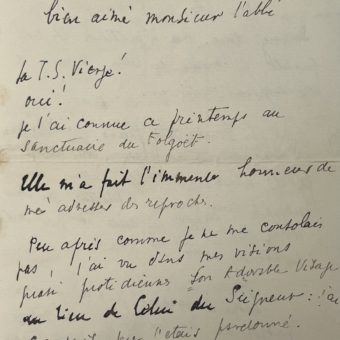 bien aimé monsieur l'abbé
La T. S. Vierge!
oui!
je l'ai connue ce printemps au
sanctuaire du Folgoët.
Elle m'a fait l'immense honneur de
m'adresser des reproches.
Peu après comme je ne me consolais
pas, j'ai vu dans mes visions
quasi quotidiennes Son Adorable Visage
au lieu de Celui du Seigneur: j'ai
que j'étais pardonné.